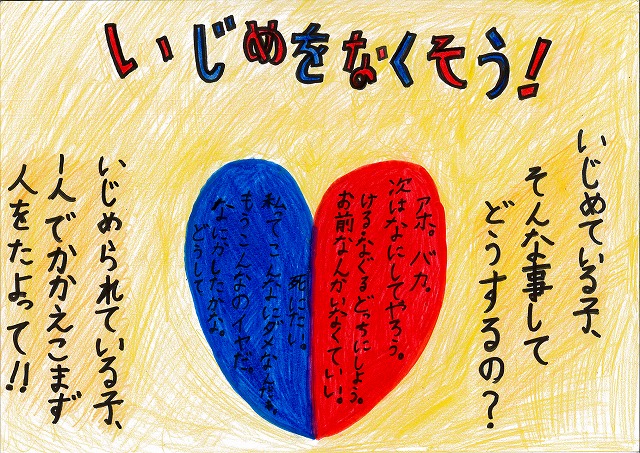 いじめをなくそう!
いじめている子、
そんな事して
どうするの?
アホ。バカ。
次はなにしてやろう。
けるなぐるどっちにしよう。
お前なんかいなくていい!
死にたい。
私ってこんなにダメなんだぁ。
もうこんなのイヤだ。
なにかしたかな。
どうして
いじめられている子、
1人でかかえこまず
人をたよって!!